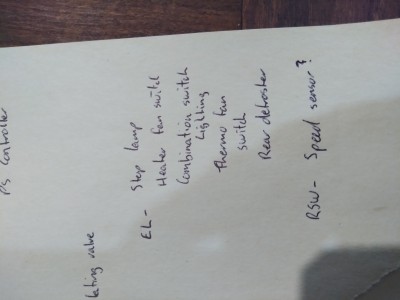 PS Controller
lating valve
EL - Stop lamp
Heater fan switch
Combination switch
Lighting
Thermo fan
switch
Rear defroster
RSW - Speed sensor?